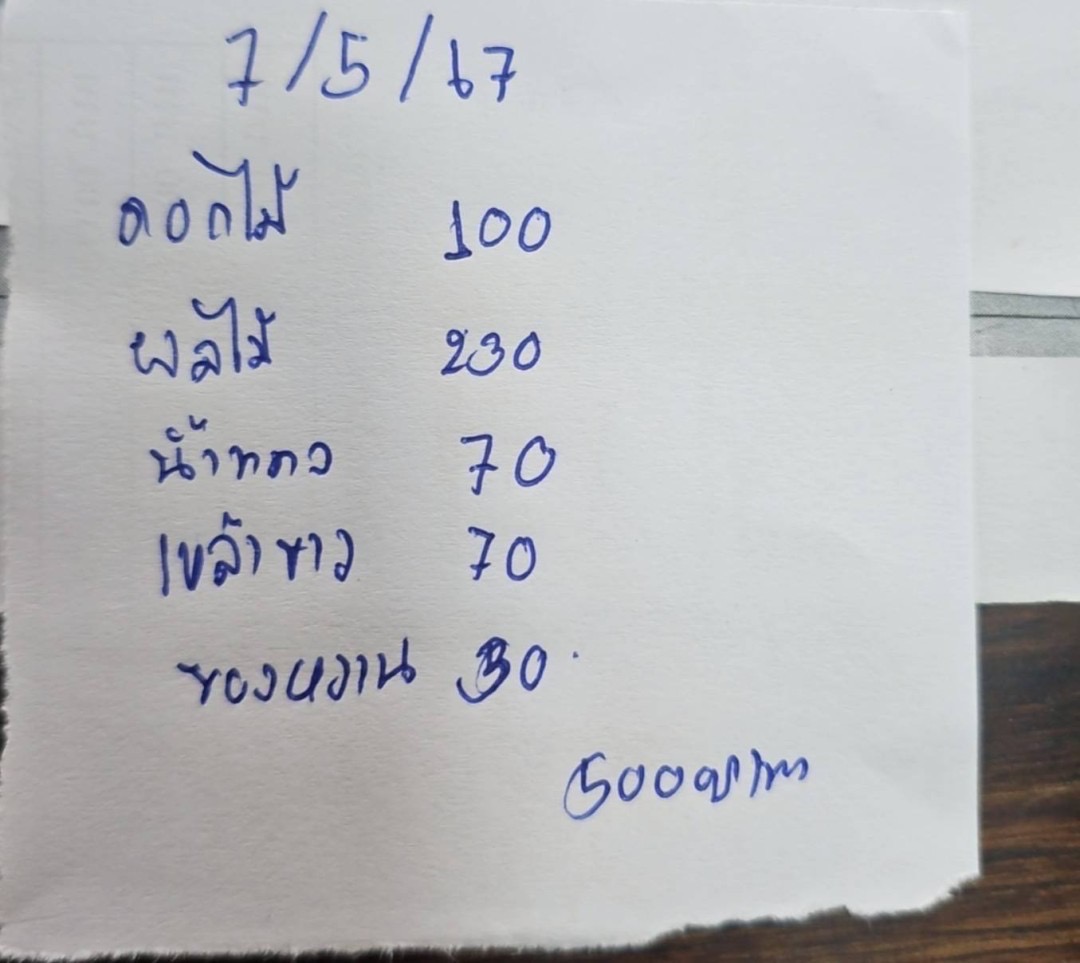 7/5/67
ดอกไม้ 100
ผลไม้ 230
น้ำแดง 70
เหล้าขาว 70
ของหวาน 30
500 บาท